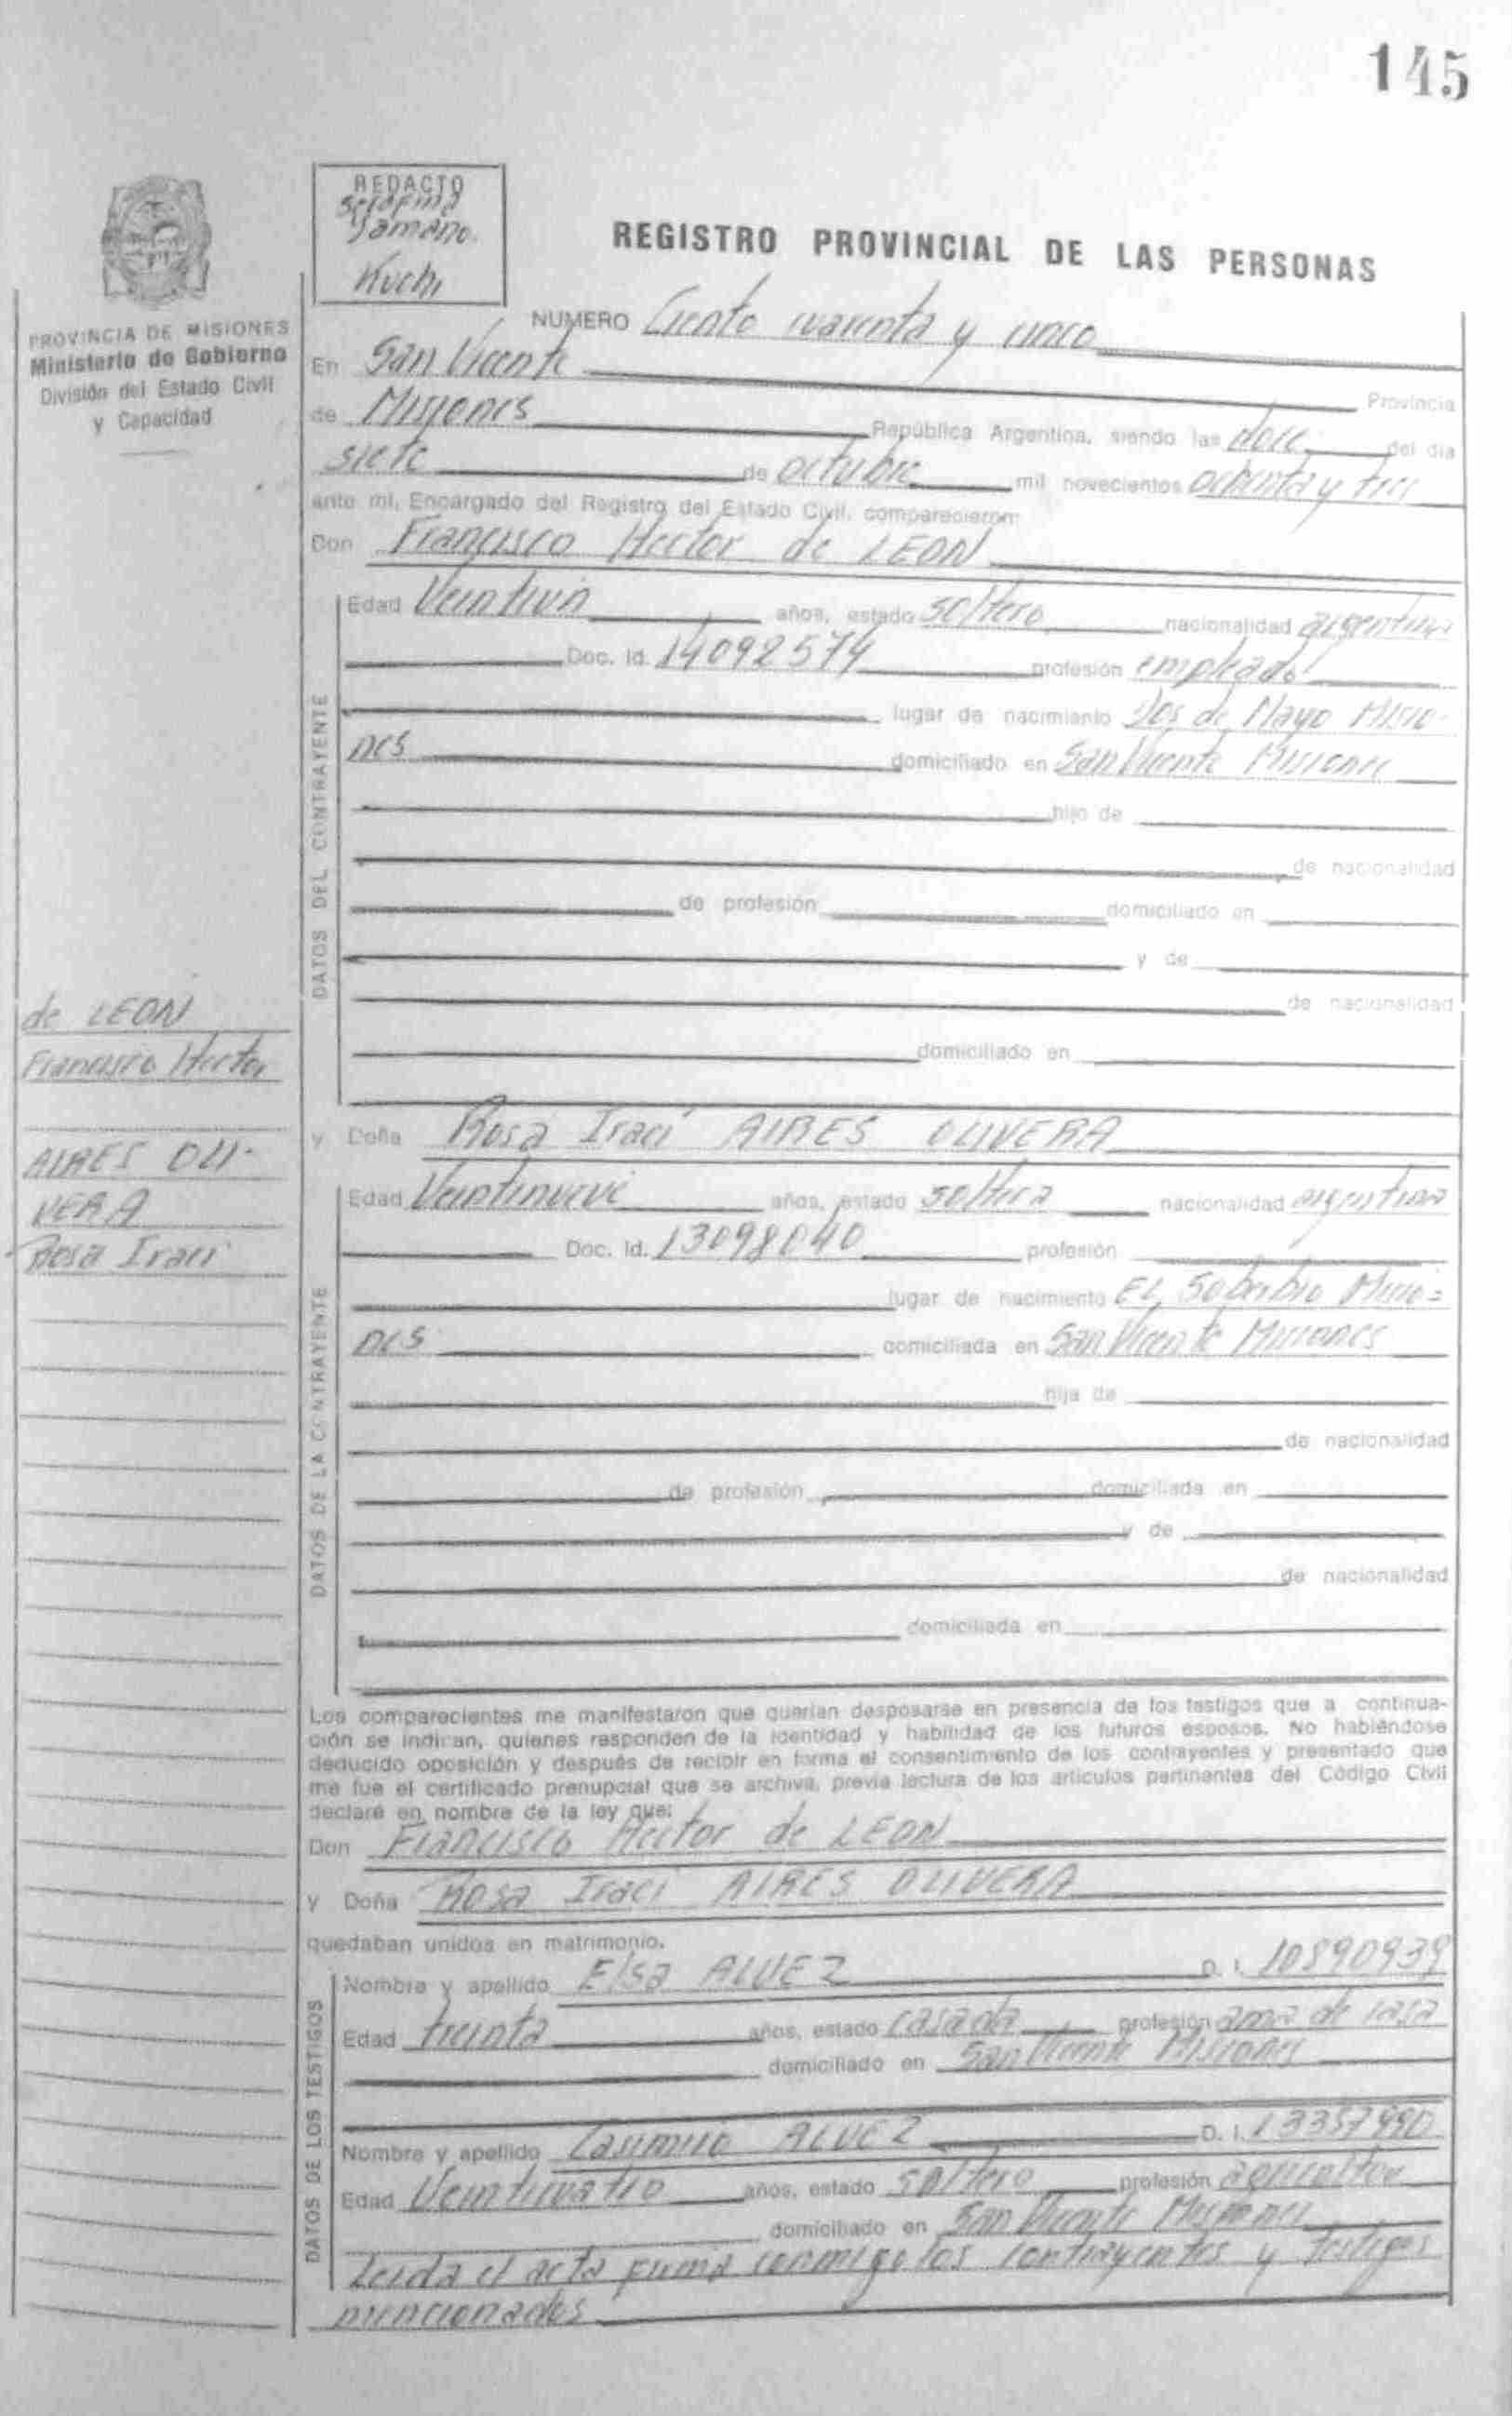 145
REDACTO
Serafina
Kuchi
REGISTRO PROVINCIAL DE LAS PERSONAS
PROVINCIA DE MISIONES
Ministerio de Gobierno
División del Estado Civil
y Capacidad
NUMERO Ciento cuarenta y cinco
En San Vicente
Provincia
de Misiones República Argentina, siendo las doce del dia
siete de octubre mil novecientos ochenta y tres
ante mi, Encargado del Registro del Estado Civil, comparecieron:
Don Francisco Hector de LEON
DATOS DEL CONTRAYENTE
Edad Veintiun años, estado soltero nacionalidad argentina
Doc. Id. 14092574 profesión empleado
lugar de nacimiento Dos de Mayo Misio-
nes domiciliado en San Vicente Misiones
hijo de
de nacionalidad
de profesión domiciliado en
y de
de nacionalidad
domiciliado en
de LEON
Francisco Hector
AIRES OLI-
VERA
Rosa Iraci
y Doña Rosa Iraci AIRES OLIVERA
DATOS DE LA CONTRAYENTE
Edad Veintinueve años, estado soltera nacionalidad argentina
Doc. Id. 13098040 profesión
lugar de nacimiento EL Soberbio Misio=
nes domiciliada en San Vicente Misiones
hija de
de nacionalidad
de profesión domiciliada en
y de
de nacionalidad
domiciliada en
Los comparecientes me manifestaron que querían desposarse en presencia de los testigos que a continua-
ción se indican, quienes responden de la identidad y habilidad de los futuros esposos. No habiéndose
deducido oposición y después de recibir en forma el consentimiento de los contrayentes y presentado que
me fue el certificado prenupcial que se archiva, previa lectura de los artículos pertinentes del Código Civil
declaré en nombre de la ley que:
Don Francisco Hector de LEON
y Doña Rosa Iraci AIRES OLIVERA
quedaban unidos en matrimonio.
DATOS DE LOS TESTIGOS
Nombre y apellido Elsa ALVEZ D. I. 10890939
Edad treinta años, estado casada profesión ama de casa
domiciliado en San Vicente Misiones
Nombre y apellido Casimiro ALVEZ D. I. 13357990
Edad Veinticuatro años, estado soltero profesión agricultor
domiciliado en San Vicente Misiones
Leida el acta firma conmigo los contrayentes y testigos
mencionados